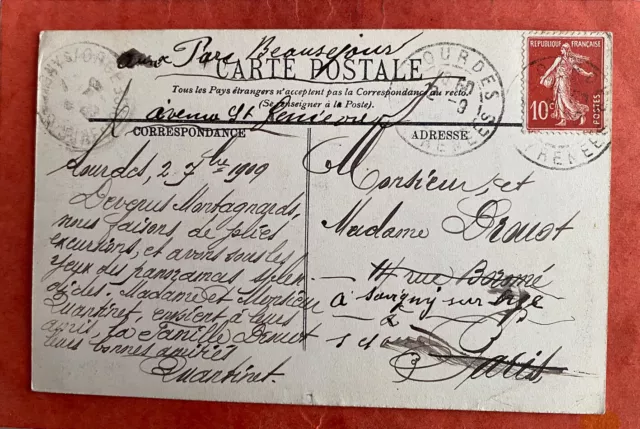 aux Parc Beauséjour
CARTE POSTALE
Tous les Pays étrangers n'acceptent pas la Correspondance au recto.
(Se renseigner à la Poste.)
avenue Ste Geneviève
CORRESPONDANCE
ADRESSE
REPUBLIQUE FRANÇAISE
10c
POSTES
LOURDES
Lourdes, 2 7bre 1909
Devenus Montagnards,
nous faisons de jolies
excursions, et avons sous les
yeux des panoramas splen
dides. Madame et Monsieur
Quantinet, envoient à leurs
amis, la Famille Drouot
leurs bonnes amitiés
Quantinet.
Monsieur et
Madame Drouot
rue
à Savigny sur Orge
S et O
Paris